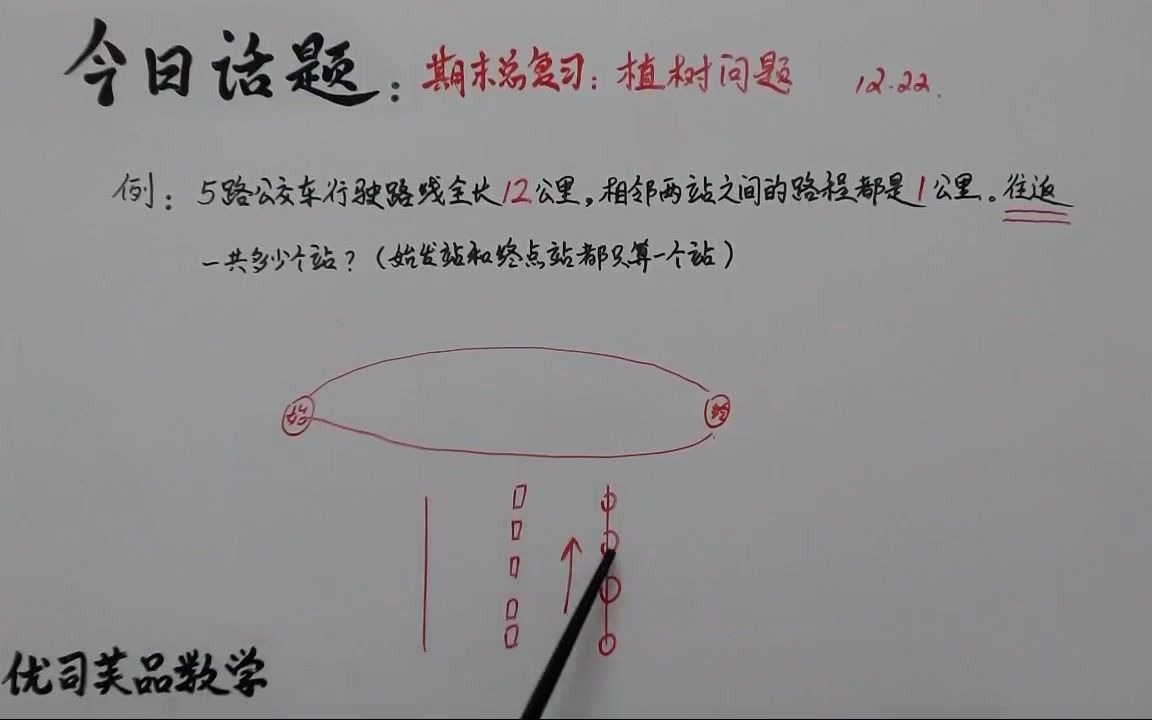 今日话题：期末总复习：植树问题 12.22.
例：5路公交车行驶路线全长12公里，相邻两站之间的路程都是1公里。往返
一共多少个站？（始发站和终点站都只算一个站）
始 终
优司芙品数学